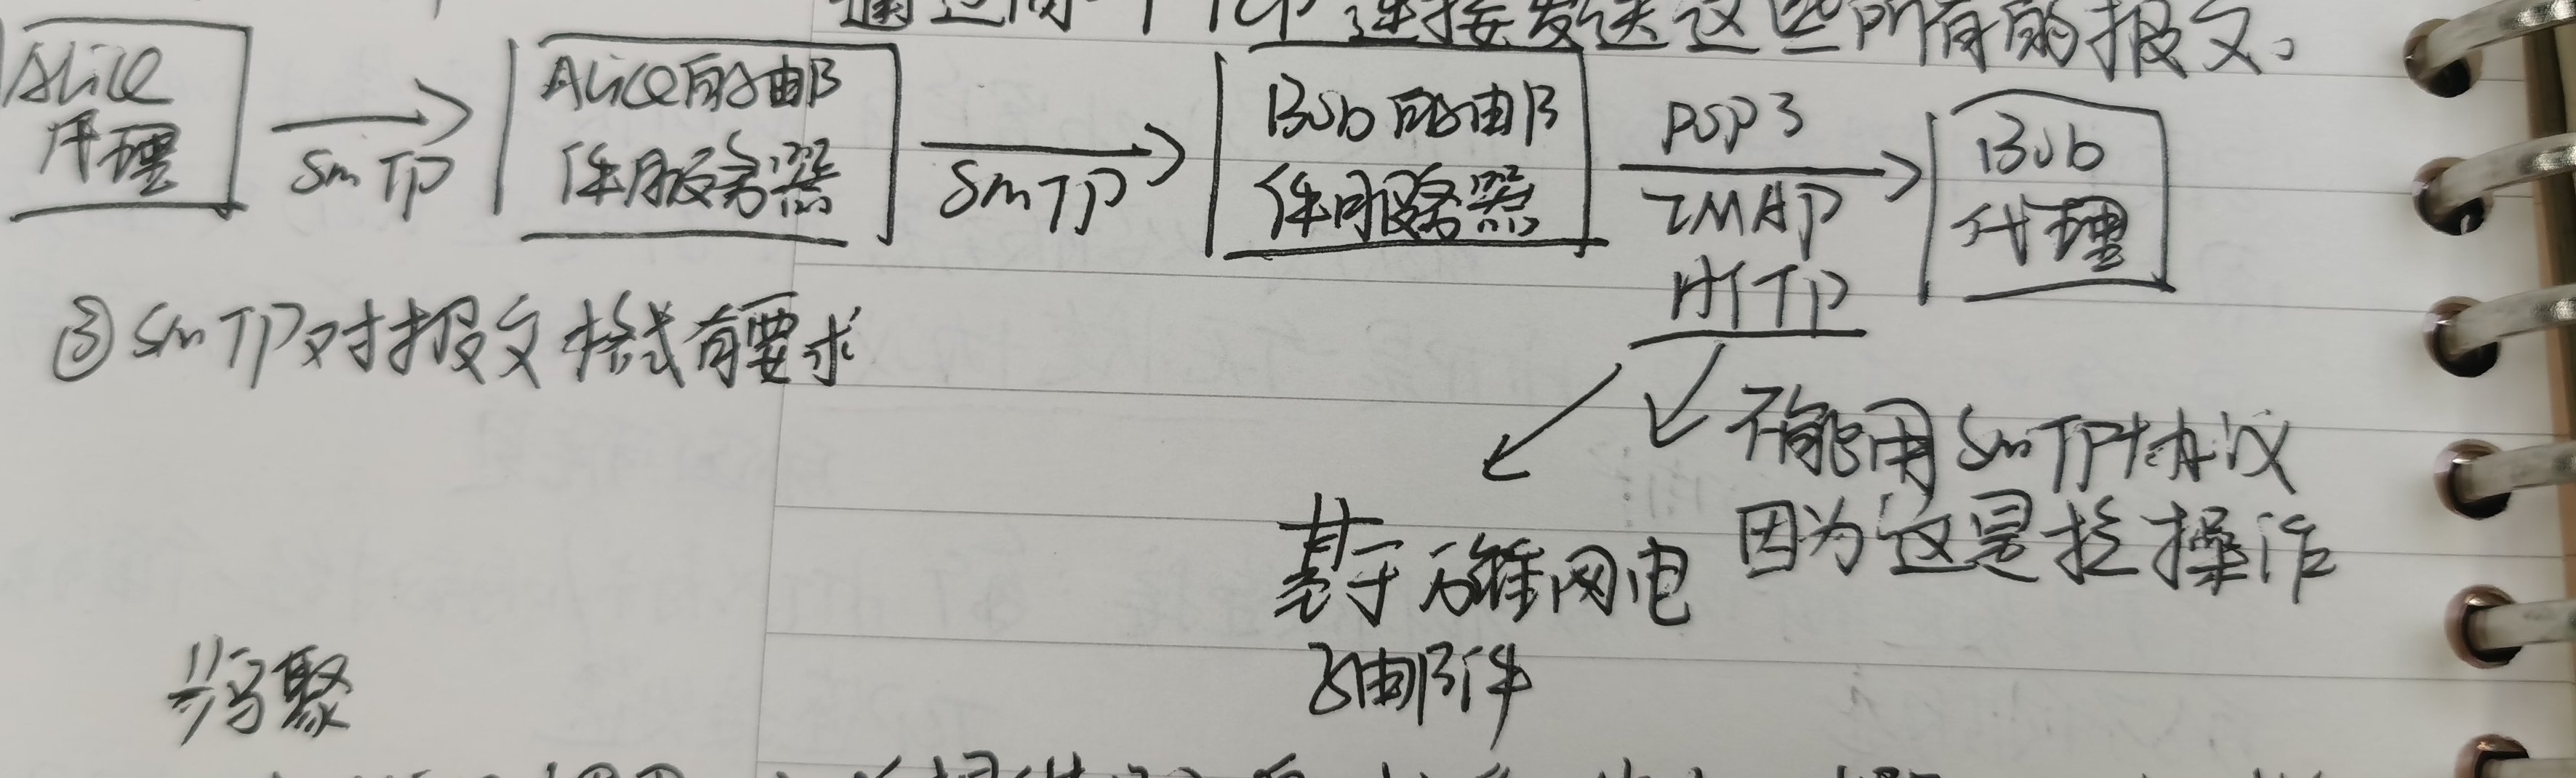 通过同一个TCP连接发送这些所有的报文。
Alice
代理
SmTP
Alice的邮
件服务器
SmTP
Bob的邮
件服务器
POP3
IMAP
HTTP
Bob
代理
③SmTP对报文格式有要求
不能用SmTP协议
因为这是拉操作
基于万维网电
子邮件
步骤